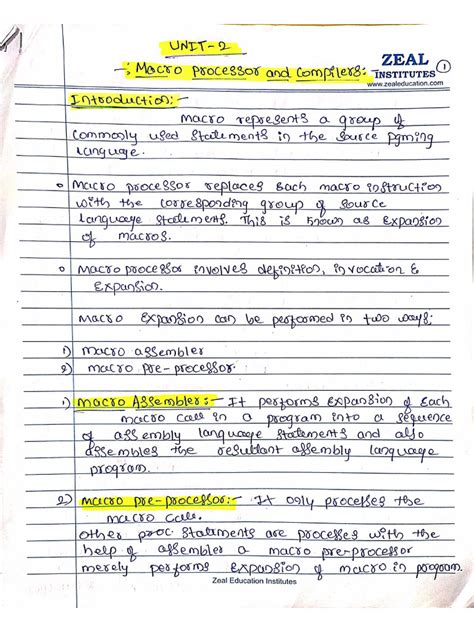 UNIT-2
ZEAL
INSTITUTES
www.zealeducation.com
1
-: Macro processor and Compilers:-
Introduction:-
Macro represents a group of
commonly used statements in the source pgming
language.
Macro processor replaces each macro instruction
with the corresponding group of source
language statements. This is known as Expansion
of macros.
Macro processor involves definition, invocation &
Expansion.
Macro Expansion can be performed in two ways:
1) macro assembler
2) macro pre-processor.
1) Macro Assembler:- It performs Expansion of each
macro call in a program into a sequence
of assembly language statements and also
assembles the resultant assembly language
program.
2) Macro pre-processor:- It only processes the
macro call.
other proc statements are processes with the
help of assembler a macro pre-processor
merely performs Expansion of macro in program.
Zeal Education Institutes